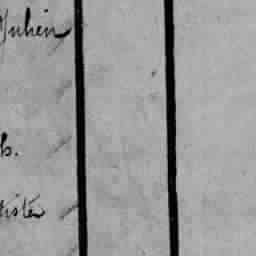 Julien
b.
tiste